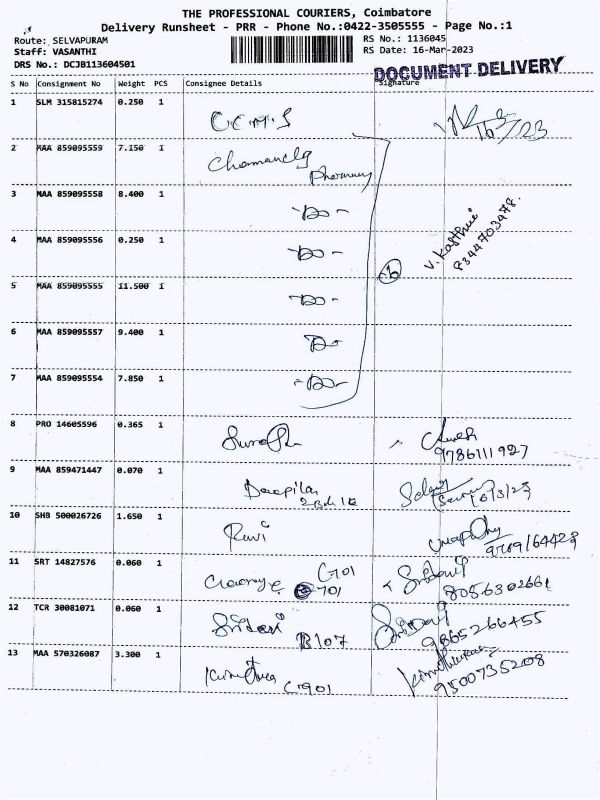 THE PROFESSIONAL COURIERS, Coimbatore
Delivery Runsheet - PRR - Phone No.:0422-3505555 - Page No.:1
Route: SELVAPURAM
RS No.: 1136045
Staff: VASANTHI
RS Date: 16-Mar-2023
DRS No.: DCJB113604501
DOCUMENT DELIVERY
S No Consignment No Weight PCS Consignee Details Signature
1 SLM 315815274 0.250 1
2 MAA 859095559 7.150 1
Pharmacy
3 MAA 859095558 8.400 1 -Do-
V. Kasthuri
8344703478.
4 MAA 859095556 0.250 1 -Do-
5 MAA 859095555 11.500 1 -Do-
6 MAA 859095557 9.400 1 Do-
7 MAA 859095554 7.850 1 -Do-
8 PRO 14605596 0.365 1
9786111927
9 MAA 859471447 0.070 1
10 SHB 500026726 1.650 1 Ravi
11 SRT 14827576 0.060 1 G701 Sridevi
701 8056302661
12 TCR 30081071 0.060 1 Sridevi Sridevi
B107 9865266455
13 MAA 570326087 3.300 1
G901 9500735208